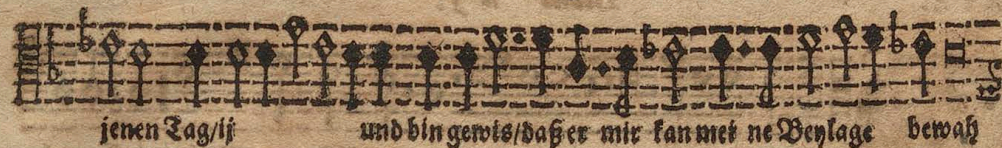 jenen Tag/ij und bin gewis/daß er mir kan mei ne Beylage bewah